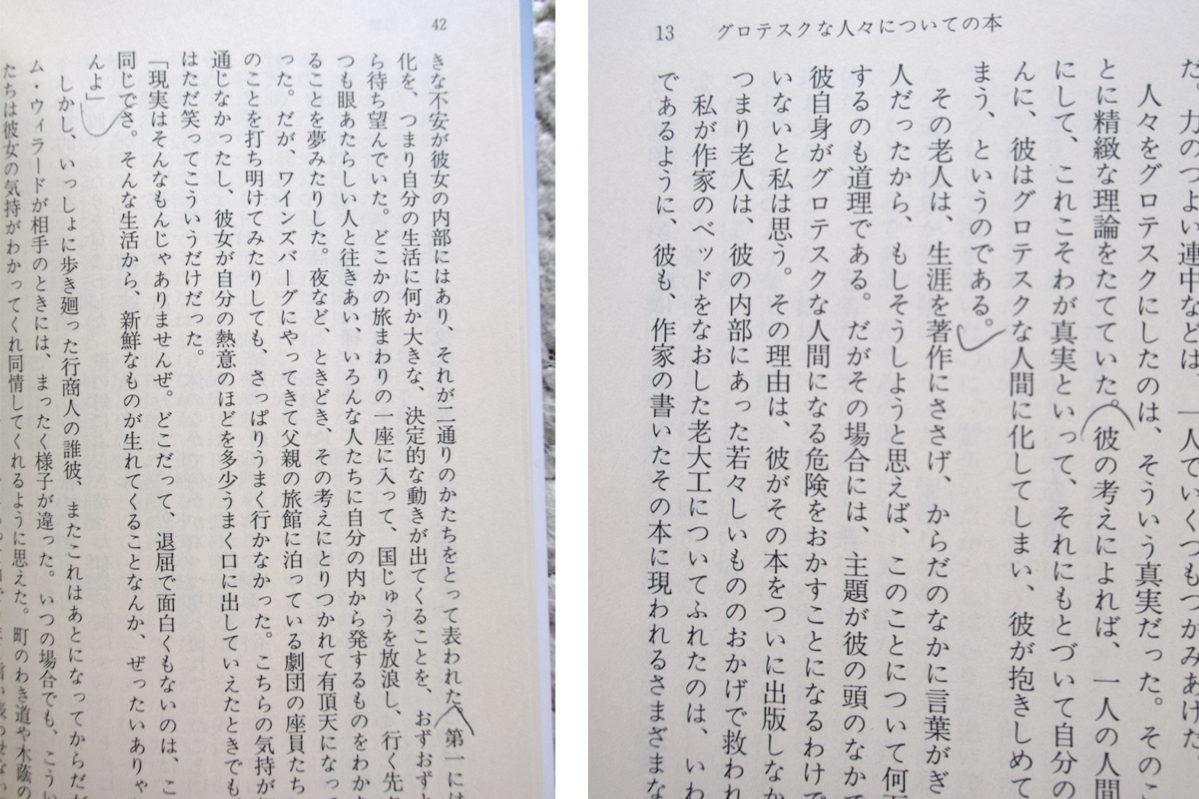 42
きな不安が彼女の内部にはあり、それが二通りのかたちをとって表われた。第一には
化を、つまり自分の生活に何か大きな、決定的な動きが出てくることを、おずおずと
ら待ち望んでいた。どこかの旅まわりの一座に入って、国じゅうを放浪し、行く先
つも眼あたらしい人と往きあい、いろんな人たちに自分の内から発するものをわか
ることを夢みたりした。夜など、ときどき、その考えにとりつかれて有頂天になっ
った。だが、ワインズバーグにやってきて父親の旅館に泊っている劇団の座員たち
のことを打ち明けてみたりしても、さっぱりうまく行かなかった。こちらの気持が
通じなかったし、彼女が自分の熱意のほどを多少うまく口に出していえたときでも
はただ笑ってこういうだけだった。
「現実はそんなもんじゃありませんぜ。どこだって、退屈で面白くもないのは、こ
同じでさ。そんな生活から、新鮮なものが生れてくることなんか、ぜったいありゃ
んよ」
しかし、いっしょに歩き廻った行商人の誰彼、またこれはあとになってからだが
ム・ウィラードが相手のときには、まったく様子が違った。いつの場合でも、こうい
たちは彼女の気持がわかってくれ同情してくれるように思えた。町のわき道や木蔭の
13 グロテスクな人々についての本
た。力のつよい連中などは、一人でいくつもつかみあげた
人々をグロテスクにしたのは、そういう真実だった。そのこ
とに精緻な理論をたてていた。彼の考えによれば、一人の人間
にして、これこそわが真実といって、それにもとづいて自分の
んに、彼はグロテスクな人間に化してしまい、彼が抱きしめて
まう、というのである。
その老人は、生涯を著作にささげ、からだのなかに言葉がぎ
人だったから、もしそうしようと思えば、このことについて何百
するのも道理である。だがその場合には、主題が彼の頭のなかで
彼自身がグロテスクな人間になる危険をおかすことになるわけで
いないと私は思う。その理由は、彼がその本をついに出版しなか
つまり老人は、彼の内部にあった若々しいもののおかげで救われ
私が作家のベッドをなおした老大工についてふれたのは、いわ
であるように、彼も、作家の書いたその本に現われるさまざまな